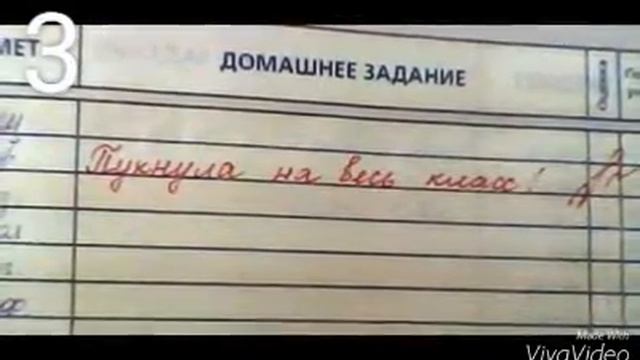 3
МЕТ
ДОМАШНЕЕ ЗАДАНИЕ
Оценка
Пукнула на весь класс!
Made With
VivaVideo